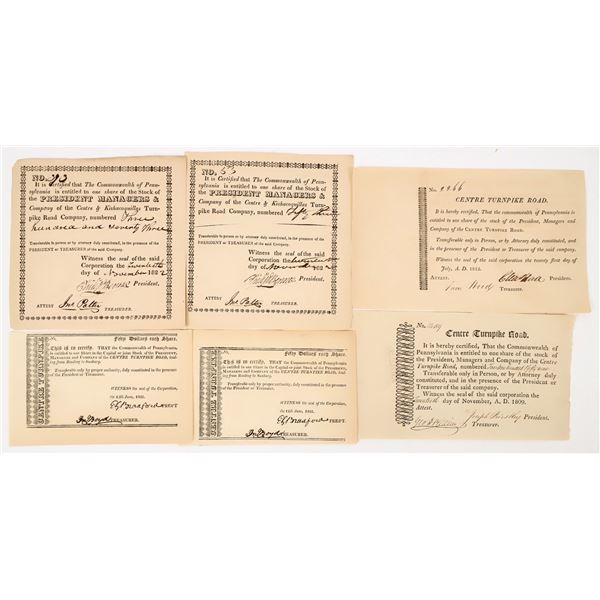 NO.
It is Certified that The Commonwealth of Penn-
sylvania is entitled to one share of the Stock of
the PRESIDENT MANAGERS &
Company of the Centre & Kishacoquillas Turn-
pike Road Company, numbered Three
hundred and seventy three
Transferable in person or by attorney duly constituted, in the presence of the
PRESIDENT or TREASURER of the said Company.
Witness the seal of the said
Corporation the twentieth
day of November 1822
President.
ATTEST Jno. Potter
Treasurer.
NO. 53
It is Certified that The Commonwealth of Penn-
sylvania is entitled to one share of the Stock of
the PRESIDENT MANAGERS &
Company of the Centre & Kishacoquillas Turn-
pike Road Company, numbered Fifty Three
Transferable in person or by attorney duly constituted, in the presence of the
PRESIDENT or TREASURER of the said Company.
Witness the seal of the said
Corporation the
day of November 1822
President.
ATTEST Jno. Potter
Treasurer.
No. 2266
CENTRE TURNPIKE ROAD.
It is hereby certified, That the commonwealth of Pennsylvania is
entitled to one share of the stock of the President, Managers and
Company of the CENTRE TURNPIKE ROAD.
Transferable only in Person, or by Attorney duly constituted, and
in the presence of the President or Treasurer of the said company.
Witness the seal of the said corporation the twenty first day of
July, A. D. 1812.
ATTEST, President.
Treasurer.
CENTRE TURNPIKE
No. Fifty Dollars each Share.
THIS IS TO CERTIFY, THAT the Commonwealth of Pennsylvania,
is entitled to one Share in the Capital or joint Stock of the PRESIDENT,
MANAGERS and COMPANY of the CENTRE TURNPIKE ROAD, lead-
ing from Reading to Sunbury.
Transferable only by proper authority, duly constituted in the presence of
the President or Treasurer.
WITNESS the seal of the Corporation,
the 15th June, 1835.
PREST.
Jno Boyd TREASURER.
CENTRE TURNPIKE
No. Fifty Dollars each Share.
THIS IS TO CERTIFY, THAT the Commonwealth of Pennsylvania,
is entitled to one Share in the Capital or joint Stock of the PRESIDENT,
MANAGERS and COMPANY of the CENTRE TURNPIKE ROAD, lead-
ing from Reading to Sunbury.
Transferable only by proper authority, duly constituted in the presence of
the President or Treasurer.
WITNESS the seal of the Corporation,
the 15th June, 1835.
PREST.
Jno Boyd TREASURER.
No.
Centre Turnpike Road.
It is hereby certified, That the Commonwealth of
Pennsylvania is entitled to one share of the stock of
the President, Managers and Company of the Centre
Turnpike Road, numbered
Transferable only in Person, or by Attorney duly
constituted, and in the presence of the President or
Treasurer of the said company.
Witness the seal of the said corporation the
twentieth day of November, A. D. 1809.
Attest. Joseph Priestley President.
Treasurer.